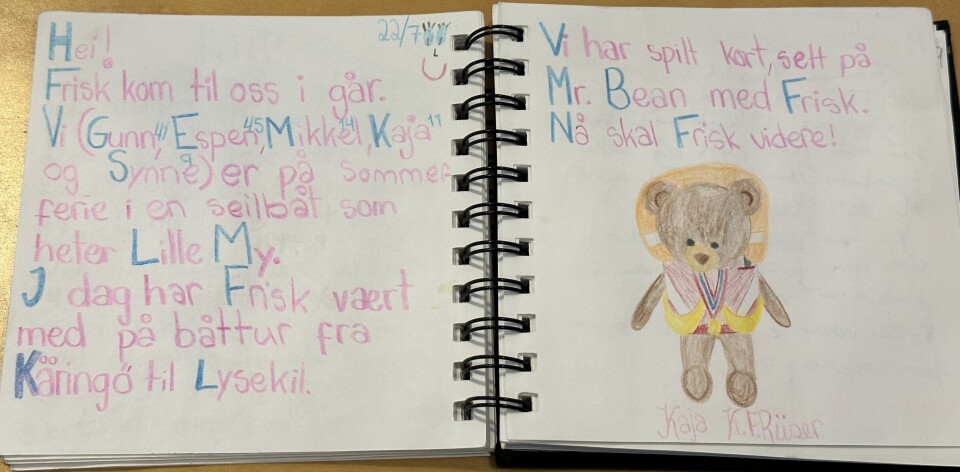 22/7
Hei!
Frisk kom til oss i går.
Vi (Gunn 41, Espen 45, Mikkel 14, Kaja 11
og Synne 9) er på sommer
ferie i en seilbåt som
heter Lille My.
I dag har Frisk vært
med på båttur fra
Käringö til Lysekil.
Vi har spilt kort, sett på
Mr. Bean med Frisk.
Nå skal Frisk videre!
Kaja K.F.Rüser